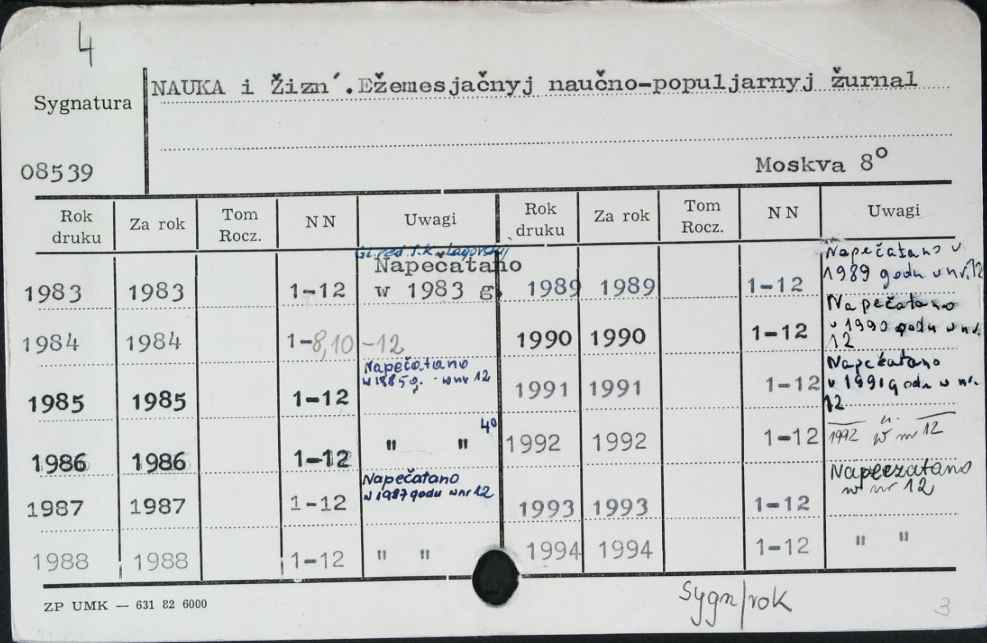 4
NAUKA i Žizn´. Ežemesjačnyj naučno-populjarnyj žurnal
Sygnatura
08539
Moskva 8°
Rok druku Za rok Tom Rocz. NN Uwagi Rok druku Za rok Tom Rocz. NN Uwagi
1983 1983 1-12 Napečatano w 1983 g. 1989 1989 1-12 Napečatano v 1989 godu v nr. 12
1984 1984 1-8,10-12 1990 1990 1-12 Napečatano v 1990 godu w nr. 12
1985 1985 1-12 Napečatano w 1985 g. w nr 12 1991 1991 1-12 Napečatano v 1991 godu w nr. 12
1986 1986 1-12 " " 4° 1992 1992 1-12 1992 w nr 12
1987 1987 1-12 Napečatano w 1987 godu w nr 12 1993 1993 1-12 w nr 12
1988 1988 1-12 " " 1994 1994 1-12 " "
ZP UMK — 631 82 6000
Sygn/rok
3